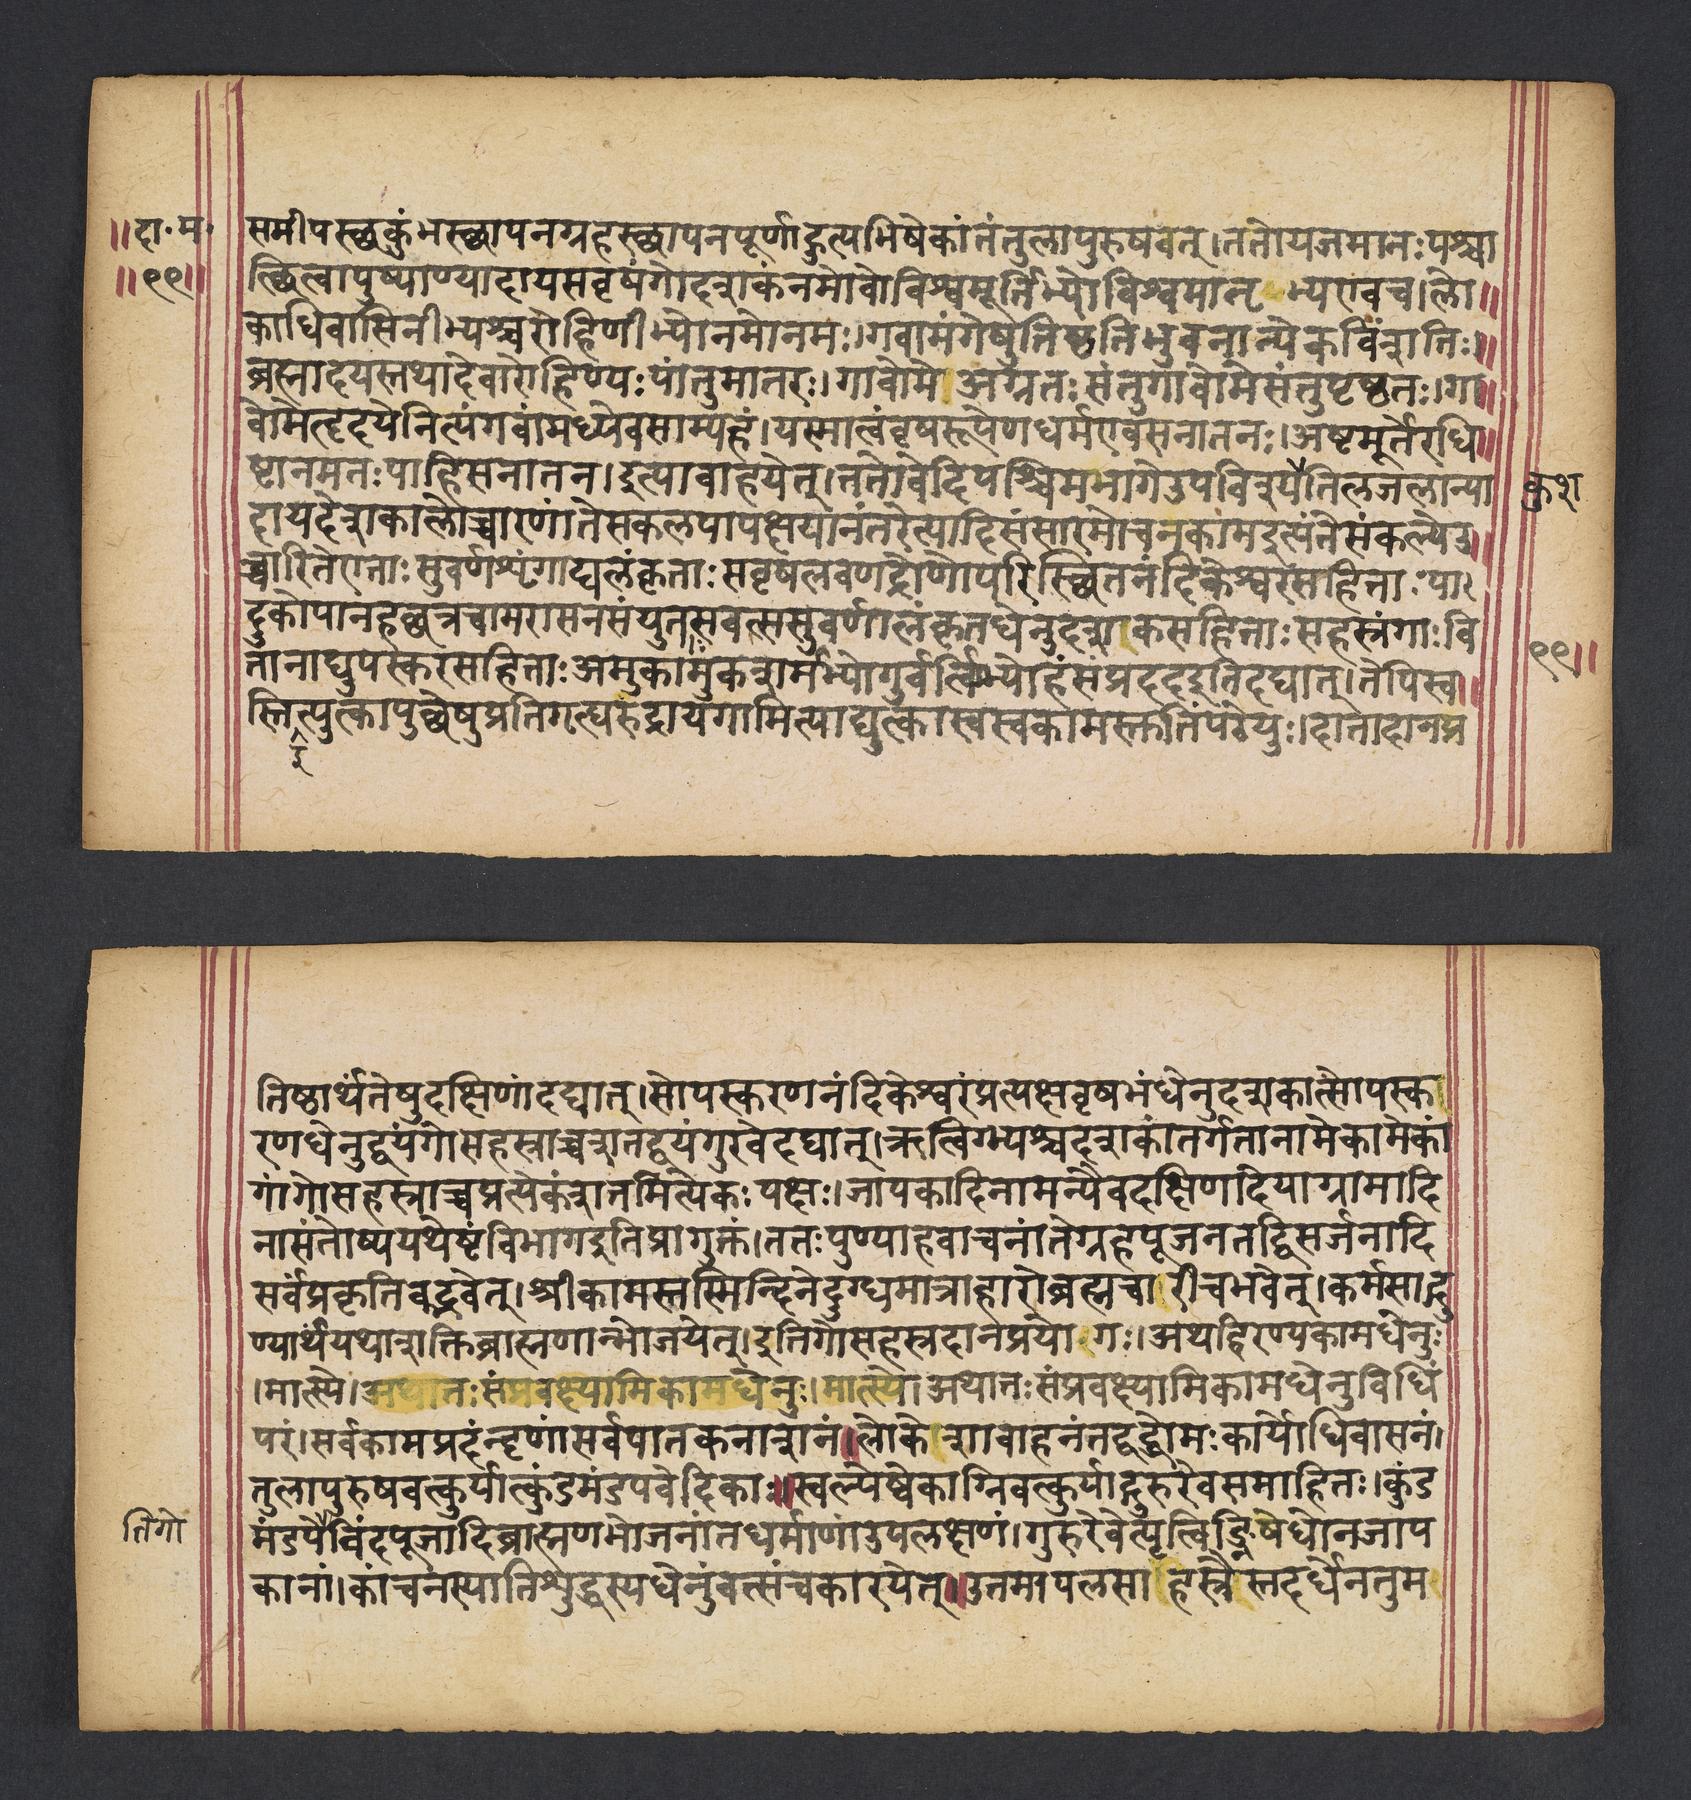 ॥दा॰म॰
॥९९॥
समीपस्थकुंभस्थापनग्रहस्थापनपूर्णाहुत्यभिषेकांतंतुलापुरुषवत्।ततोयजमानःपश्चा
त्स्थित्वापुष्पाण्यादायसवृषंगोदशकंनमोवोविश्वमूर्तिभ्योविश्वमातृभ्यएवच।लो
काधिवासिनीभ्यश्चरोहिणीभ्योनमोनमः।गवामंगेषुतिष्ठंतिभुवनान्येकविंशतिः।
ब्रह्मादयस्तथादेवारोहिण्यःपांतुमातरः।गावोमे अग्रतःसंतुगावोमेसंतुपृष्ठतः।गा
वोमेहृदयेनित्यंगवांमध्येवसाम्यहं।यस्मात्त्वंवृषरूपेणधर्मएवसनातनः।अष्टमूर्तेरधि
ष्टानमतःपाहिसनातन।इत्यावाहयेत्।ततोवेदिपश्चिमभागेउपविश्यतिलजलान्या
कुश
दायदेशकालोच्चारणांतेसकलपापक्षयानंतरेत्यादिसंसारमोचनकामइत्यंतेसंकल्पेउ
च्चारितेएताःसुवर्णशृंगाद्यलंकृताःसवृषलवणद्रोणोपरिस्थितनंदिकेश्वरसहिताःपा
दुकोपानहछत्रचामरासनसंयुतसवत्ससुवर्णालंकृतधेनुदशकसहिताःसहस्रंगाःवि
तानाद्युपस्करसहिताःअमुकामुकशर्मभ्योगुर्वर्त्विग्भ्योहंसंप्रददइतिदद्यात्।तेपिस्व
९९॥
स्तित्युत्कापुच्छेषुप्रतिगृह्यरुद्रायगामित्याद्युत्कास्वस्वकामस्तुतिंपठेयुः।दातादानप्र
इ
तिष्ठार्थंतेषुदक्षिणांदद्यात्।सोपस्करणनंदिकेश्वरंप्रत्यक्षवृषभंधेनुदशकात्सोपस्क
रणधेनुद्वयंगोसहस्राच्चशतद्वयंगुरवेदद्यात्।ऋत्विग्भ्यश्चदशकांतर्गतानामेकामेकां
गांगोसहस्राच्चप्रत्येकंशतमित्येकःपक्षः।जापकादिनामन्यैवदक्षिणादेयाग्रामादि
नासंतोष्ययथेष्टंविभागइतिप्रागुक्तं।ततःपुण्याहवाचनांतेग्रहपूजनतद्विसर्जनादि
सर्वंप्रकृतिवद्भवेत्।श्रीकामस्तस्मिन्दिनेदुग्धमात्राहारोब्रह्मचारीचभवेत्।कर्मसाद्गु
ण्यार्थंयथाशक्तिब्राह्मणान्भोजयेत्।इतिगोसहस्रदानप्रयोगः।अथहिरण्यकामधेनुः
।मात्स्ये।अथातःसंप्रवक्ष्यामिकामधेनुः।मात्स्ये।अथातःसंप्रवक्ष्यामिकामधेनुविधिं
परं।सर्वकामप्रदंनृणांसर्वपातकनाशनं॥लोकेशावाहनंतद्वद्धोमःकार्योधिवासनं।
तुलापुरुषवत्कुर्यात्कुंडमंडपवेदिकाः॥स्वल्पेष्वेकाग्निवत्कुर्याद्गुरुरेवसमाहितः।कुंड
तिगो
मंडपेविंदपूजादिब्राह्मणभोजनांतधर्माणांउपलक्षणं।गुरुरेवेत्यृत्विङ्निषेधोनजाप
कानां।कांचनस्यातिशुद्धस्यधेनुंवत्संचकारयेत्॥उत्तमापलसाहस्रैस्तदर्धेनतुम